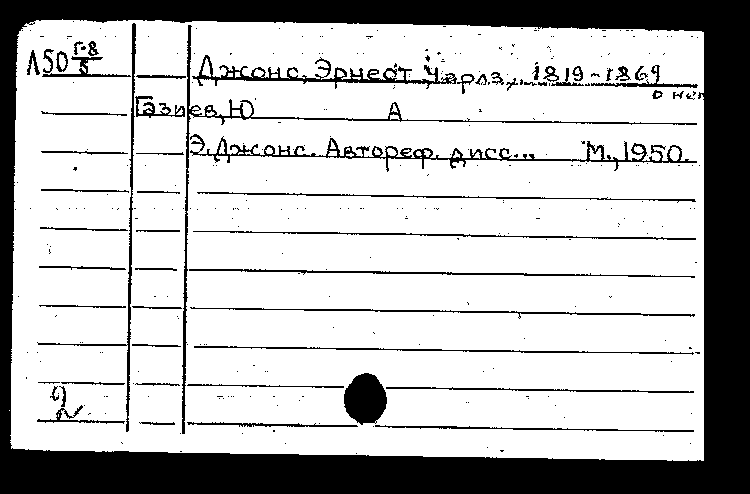 Л50 Г-8/5 Джонс, Эрнест Чарлз, 1819-1869
о нем
Газиев, Ю А
Э.Джонс. Автореф. дисс... М., 1950.
2